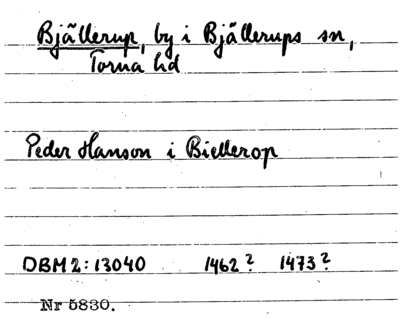 Bjällerup, by i Bjällerups sn,
Torna hd
Peder Hanson i Biellerop
DBM2:13040 1462? 1473?
Nr 5830.